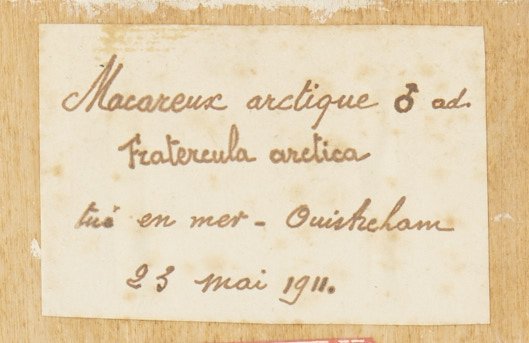 Macareux arctique ♂ ad.
Fratercula arctica
tué en mer - Ouistreham
23 mai 1911.